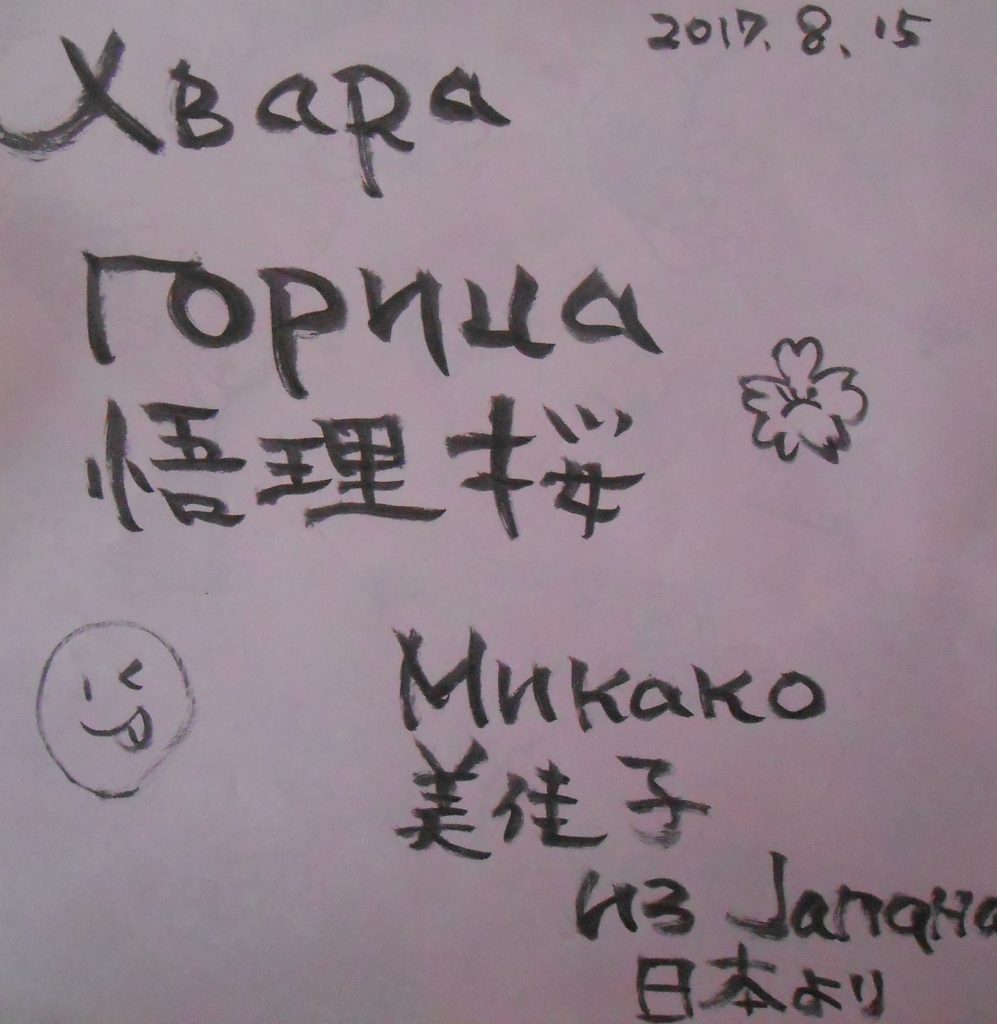 2017. 8. 15
Хвара
Горица
悟理桜
Микако
美佳子
из Јапана
日本より